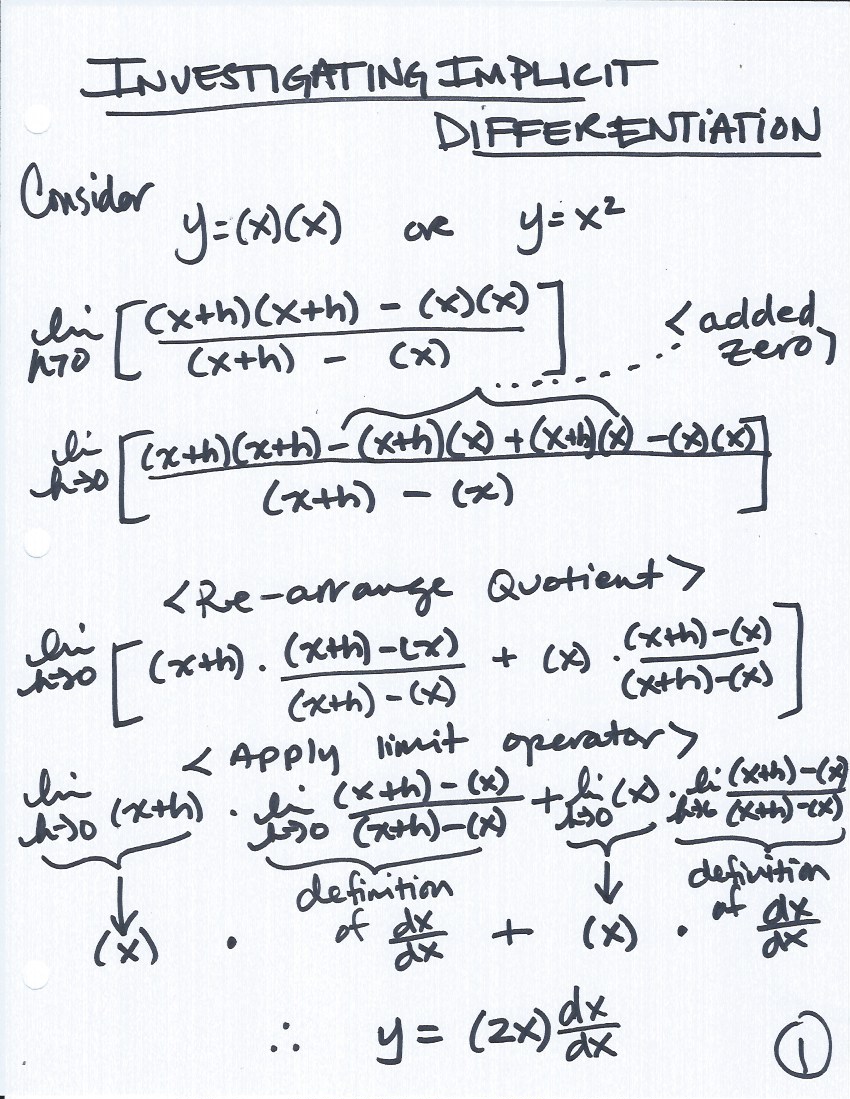 INVESTIGATING IMPLICIT
DIFFERENTIATION
Consider
y=(x)(x) or y=x²
lim h→0 [ ((x+h)(x+h) - (x)(x)) / ((x+h) - (x)) ]
<added zero>
lim h→0 [ ((x+h)(x+h) - (x+h)(x) + (x+h)(x) - (x)(x)) / ((x+h) - (x)) ]
<Re-arrange Quotient>
lim h→0 [ (x+h) · ((x+h)-(x)) / ((x+h)-(x)) + (x) · ((x+h)-(x)) / ((x+h)-(x)) ]
<Apply limit operator>
lim h→0 (x+h) · lim h→0 ((x+h)-(x)) / ((x+h)-(x)) + lim h→0 (x) · lim h→0 ((x+h)-(x)) / ((x+h)-(x))
(x) · definition of dx/dx + (x) · definition of dx/dx
∴ y = (2x) dx/dx
1